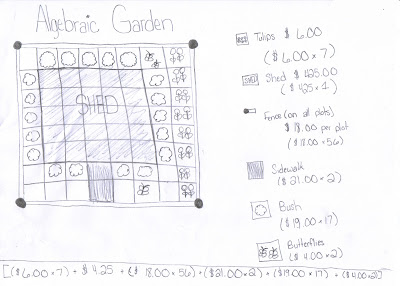 Algebraic Garden
SHED
Tulips $6.00
($6.00 × 7)
SHED Shed $425.00
($425 × 1)
Fence (on all plots)
$18.00 per plot
($18.00 × 56)
Sidewalk
($21.00 × 2)
Bush
($19.00 × 17)
Butterflies
($4.00 × 2)
[($6.00 × 7) + $4.25 + ($18.00 × 56) + ($21.00 × 2) + ($19.00 × 17) + ($4.00 × 2)]